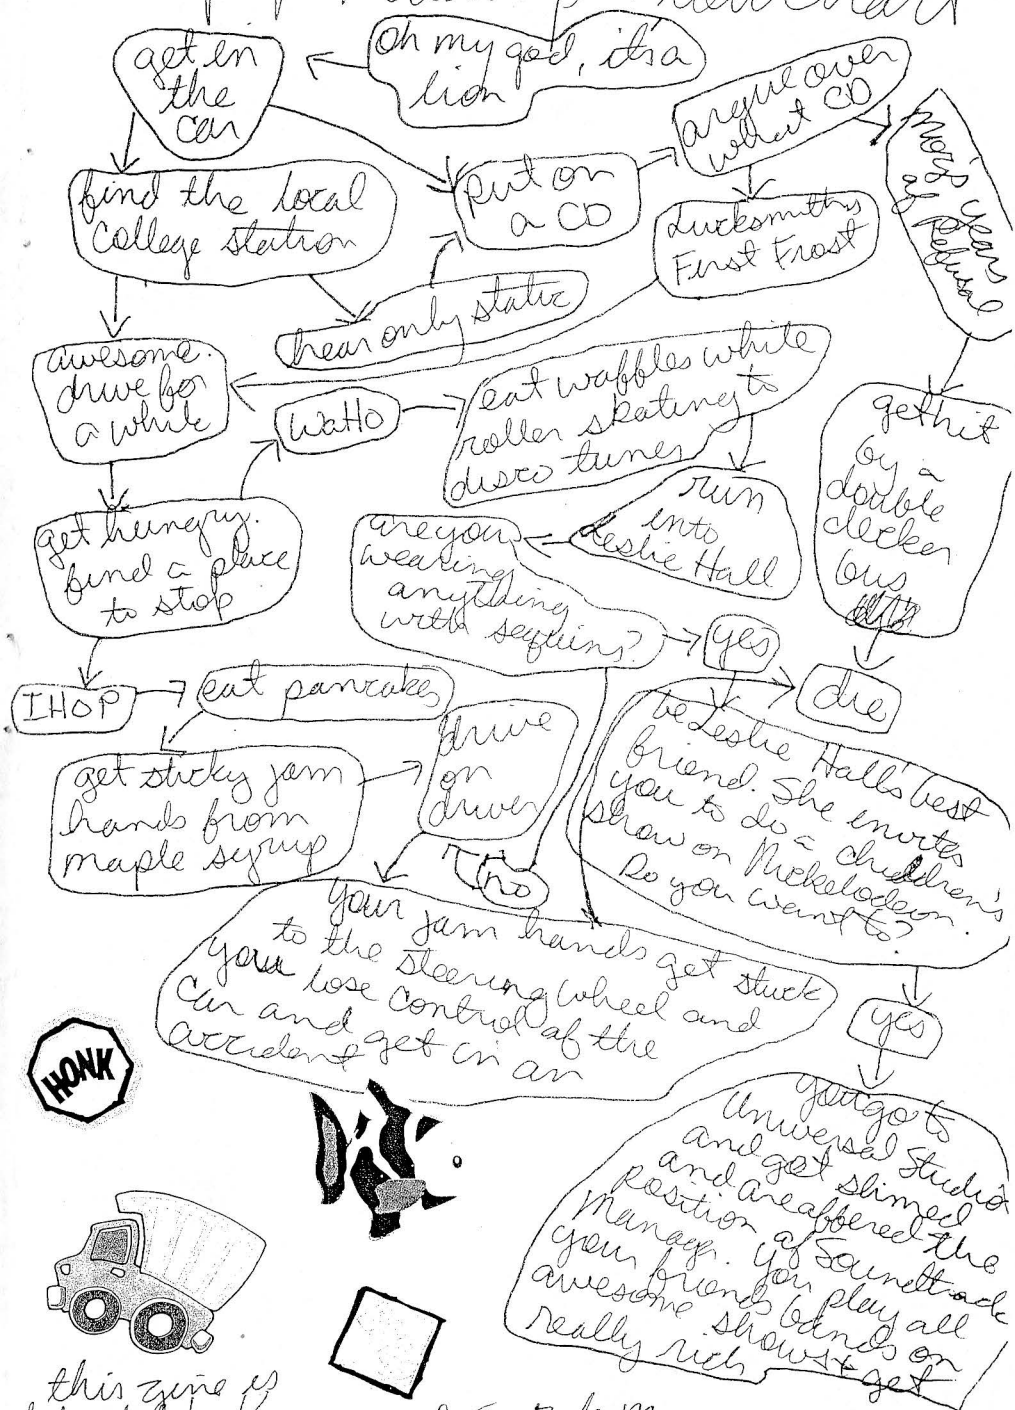 oh my god, it's a
lion
get in
the
car
argue over
what CD
put on
a CD
find the local
college station
Lucksmiths
First Frost
Moz's years
of Refusal
hear only static
awesome.
drive for
a while
WaHo
eat waffles while
roller skating to
disco tunes
get hit
by a
double
decker
bus
run
into
Leslie Hall
get hungry.
find a place
to stop
are you
wearing
anything
with sequins?
yes
die
IHOP
eat pancakes
get sticky jam
hands from
maple syrup
drive
on
driver
no
be Leslie Hall's best
friend. She invites
you to do a children's
show on Nickelodeon.
Do you want to?
your jam hands get stuck
to the steering wheel and
you lose control of the
car and get in an
accident
yes
you go to
Universal Studios
and get slimed
and are offered the
position of Soundtrack
Manager. You play all
your friends bands on
awesome shows + get
really rich
HONK
this zine is